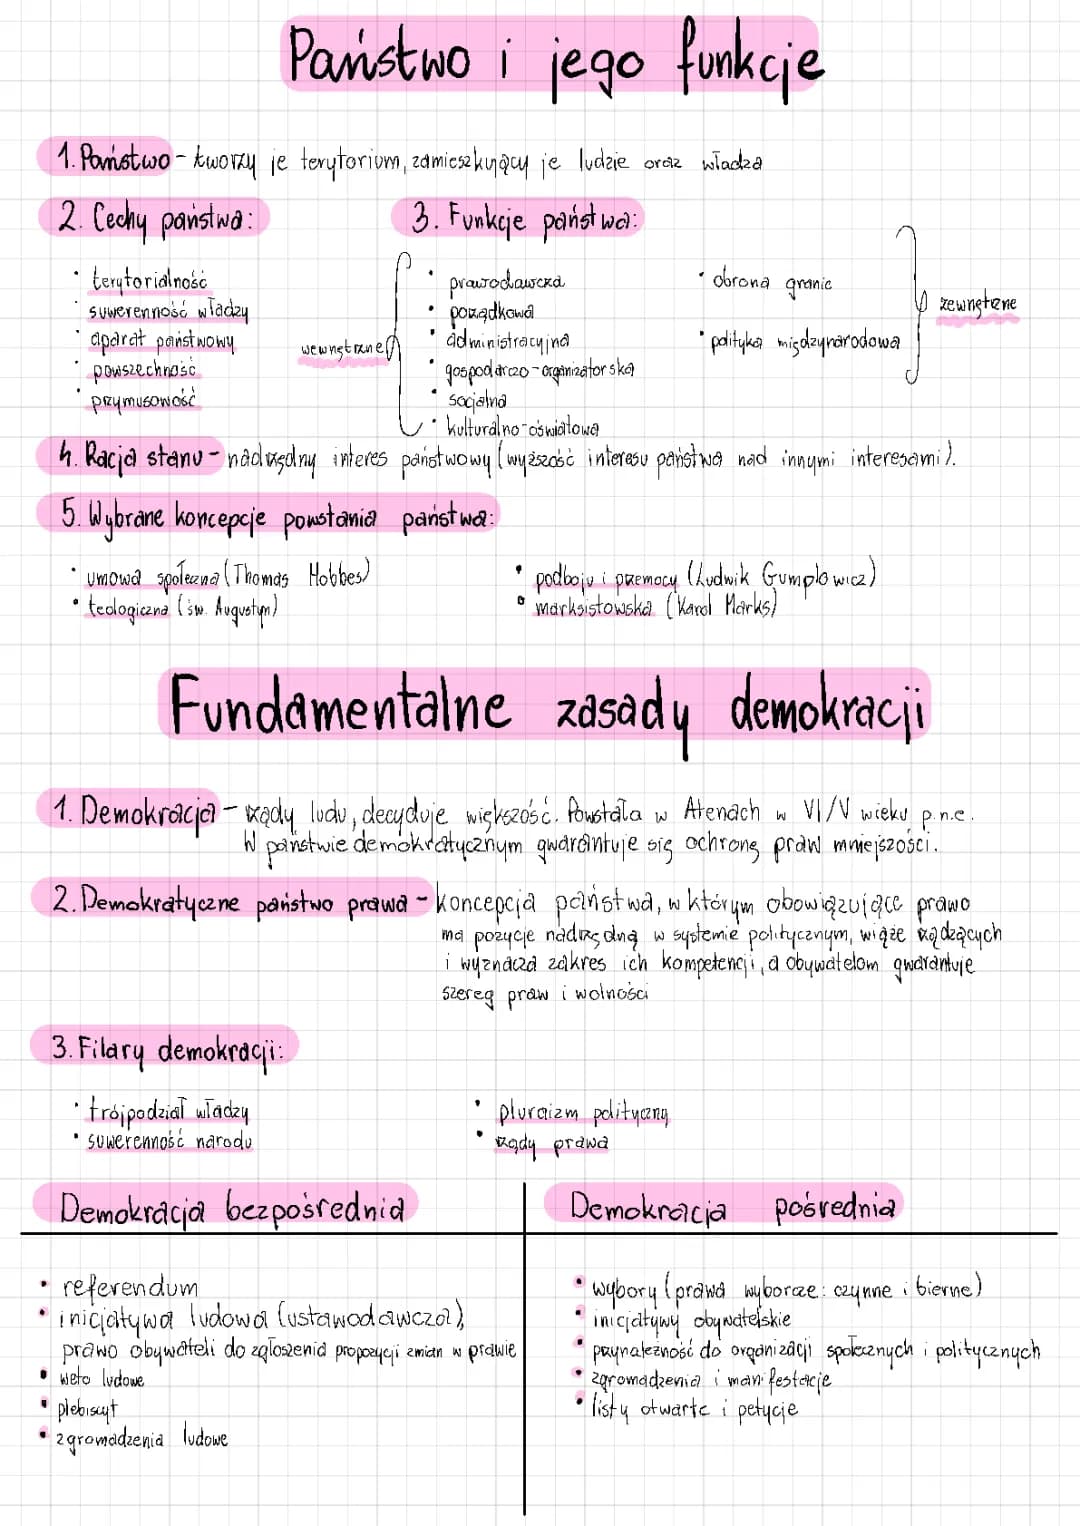 Państwo i jego funkcje
1. Państwo - tworzy je terytorium, zamieszkujący je ludzie oraz władza
2. Cechy państwa:
• terytorialność
• suwerenność władzy
• aparat państwowy
• powszechność
• przymusowość
3. Funkcje państwa:
wewnętrzne
• prawodawcza
• porządkowa
• administracyjna
• gospodarczo-organizatorska
• socjalna
• kulturalno-oświatowa
• obrona granic
• polityka międzynarodowa
zewnętrzne
4. Racja stanu - nadrzędny interes państwowy (wyższość interesu państwa nad innymi interesami).
5. Wybrane koncepcje powstania państwa:
• umowa społeczna (Thomas Hobbes)
• teologiczna (św. Augustyn)
• podboju i przemocy (Ludwik Gumplowicz)
• marksistowska (Karol Marks)
Fundamentalne zasady demokracji
1. Demokracja - rządy ludu, decyduje większość. Powstała w Atenach w VI/V wieku p.n.e.
W państwie demokratycznym gwarantuje się ochronę praw mniejszości.
2. Demokratyczne państwo prawa - koncepcja państwa, w którym obowiązujące prawo
ma pozycje nadrzędną w systemie politycznym, wiąże rządzących
i wyznacza zakres ich kompetencji, a obywatelom gwarantuje
szereg praw i wolności
3. Filary demokracji:
• trójpodział władzy
• suwerenność narodu
• pluralizm polityczny
• rządy prawa
Demokracja bezpośrednia
• referendum
• inicjatywa ludowa (ustawodawcza),
prawo obywateli do zgłoszenia propozycji zmian w prawie
• weto ludowe
• plebiscyt
• zgromadzenia ludowe
Demokracja pośrednia
• wybory (prawa wyborcze: czynne i bierne)
• inicjatywy obywatelskie
• przynależność do organizacji społecznych i politycznych
• zgromadzenia i manifestacje
• listy otwarte i petycje